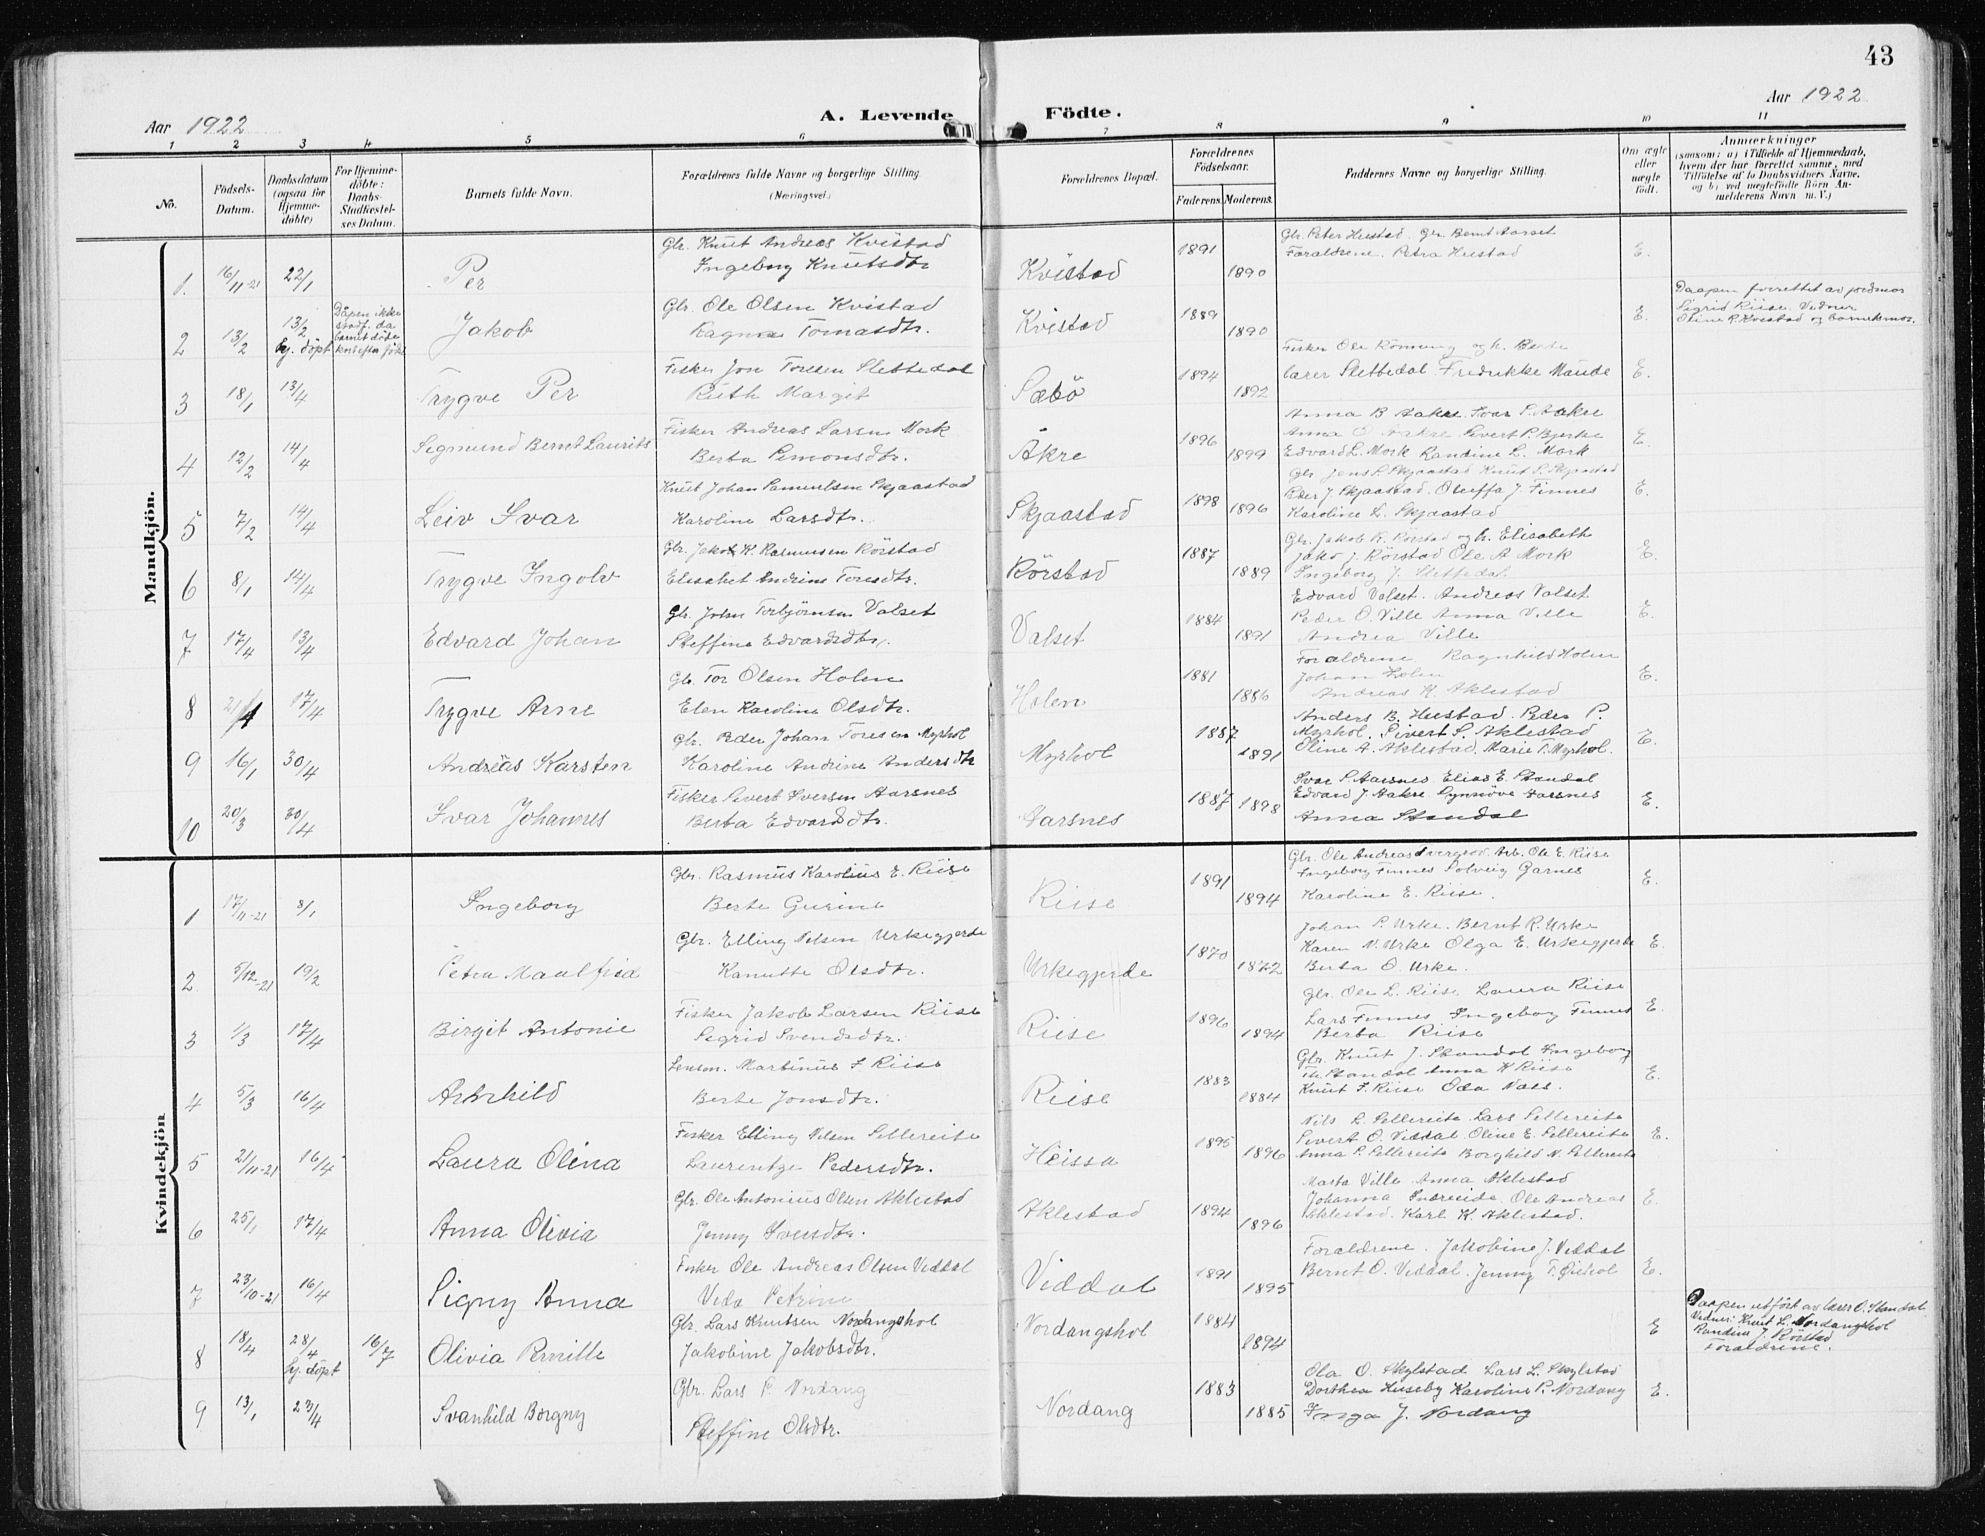 43
Aar 1922
A. Levende Födte.
Aar 1922
1 2 3 4 5 6 7 8 9 10 11
No.
Födsels-Datum.
Daabsdatum (ogsaa for Hjemme-döbte)
For Hjemme-döbte: Daabs-Stadfæstel-ses Datum.
Barnets fulde Navn.
Forældrenes fulde Navne og borgerlige Stilling.
(Næringsvei.)
Forældrenes Bopæl.
Forældrenes Födselsaar.
Faderens. Moderens.
Faddernes Navne og borgerlige Stilling.
Om ægte eller uægte födt.
Anmærkninger
(saasom: a) i Tilfælde af Hjemmedaab, hvem der har forrettet samme, med Tilföielse af to Daabsvidners Navne, og b) ved uægtefödte Börn An-melderens Navn m. V.)
Mandkjön.
1. 16/11-21 22/1 Per
Gbr. Knut Andreas Kvistad
Ingeborg Knutsdtr
Kvistad 1891 1890
Gbr. Peter Hustad. Gr. Bernt Aarset
Foraldrene. Petra Hustad
E.
2 13/2 13/2 hj. döpt
Dåpen ikke stadf. da barnet döde
Jakob
Gbr. Ole Olsen Kvistad
Ragna Tomasdtr.
Kvistad 1889 1890
E.
Daapen forrettet av jordmor
Sigrid Riise. Vidner
Oline R. Kvistad og barnets mor.
3 18/1 13/4 Trygve Per
Fisker Jon Toresen Slettedal
Ruth Margit
Sæbö 1894 1892
Fisker Ole Rönning og h. Berte
lærer Slettedal Fredrikke Maude
E.
4 12/2 14/4 Sigmund Bernt Laurits
Fisker Andreas Larsen Mork
Berta Simonsdtr.
Åkre 1896 1899
Anna B Aakre. Ivar S. Aakre
Anna O. Aakre. Sivert P. Bjerke
Edvard L. Mork Randine L. Mork
E.
5 7/2 14/4 Leiv Ivar
Knut Johan Samuelsen Skjaastad
Karoline Larsdtr.
Skjaastad 1898 1896
Gbr. Jens S. Skjaastad Knut S. Skjaastad
Peder J. Skjaastad. Oluffa J. Finnes
Karoline L. Skjaastad
E.
6 8/1 14/4 Trygve Ingolv
Gbr. Jakob K. Rasmussen Rörstad
Elisabet Andrine Toresdtr.
Rörstad 1887 1889
Gbr. Jakob R. Rörstad og h. Elisabeth
Jakob J. Rörstad Ole A Mork
Ingeborg J. Slettedal.
E.
7 17/4 13/4 Edvard Johan
Gbr. Johan Torbjörnsen Valset
Steffine Edvardsdtr.
Valset 1884 1891
Edvard Valset. Andreas Valset
Peder O. Ville Anna Ville
Andrea Ville
E.
8 17/4 Trygve Arne
Gb. Tor Olsen Holen
Elen Karoline Olsdtr.
Holen 1881 1886
Foraldrene Ragnhild Holen
Johan Holen
Andreas K. Aklestad
E.
9 16/1 30/4 Andreas Karsten
Gbr. Peder Johan Toresen Myrhol
Karoline Andrine Andersdtr
Myrhol 1887 1891
Anders B. Hustad. Peder P.
Myrhol. Sivert S. Aklestad
Oline A. Aklestad. Marie T. Myrhol.
E.
10 20/3 30/4 Ivar Johannes
Fisker Sivert Iversen Aarsnes
Berta Edvardsdtr.
Aarsnes 1887 1898
Ivar S. Aarsnes Elias E. Standal
Edvard J. Aakre Synnöve Aarsnes
Anna Standal
E.
Kvindekjön
1 17/11-21 8/1 Ingeborg
Gbr. Rasmus Karolius E. Riise
Berte Gurine
Riise 1891 1894
Ingeborg Finnes Solveig Garnes
Karoline E. Riise.
E.
2 5/12-21 19/2 Petra Maalfrid
Gbr. Elling Nilsen Urkegjerde
Kanutte Olsdtr.
Urkegjerde 1870 1872
Johan P. Urke. Bernt R. Urke
Karen N. Urke Olga E. Urkegjerde
Berta O. Urke.
E.
3 1/3 17/4 Birgit Antonie
Fisker Jakob Larsen Riise
Sigrid Svendsdtr.
Riise 1896 1894
Gbr. Ole L. Riise. Laura Riise
Lars Finnes Ingeborg Finnes
Berta Riise
E.
4 5/3 16/4
Martinus I Riise
Berte Jonsdtr.
Riise 1883 1884
Gbr. Knut J. Standal Ingeborg
Th. Standal Anna K Riise
Knut I. Riise Oda Næs.
E.
5 21/11-21 16/4 Laura Olina
Fisker Elling Nilsen Sellereite
Laurentze Pedersdtr.
Heissa 1895 1896
Nils L. Sellereite Lars Sellereite
Sivert O. Viddal Oline E. Sellereite
Anna P. Sellereite Borghild N. Sellereite
E.
6 25/1 17/4 Anna Olivia
Gbr. Ole Antonius Olsen Aklestad
Jenny Iversdtr.
Aklestad 1894 1896
Marta Ville Anna Aklestad
Johanna Ole Andreas
Aklestad. Karl K. Aklestad.
E
7 23/10-21 16/4 Signy Anna
Fisker Ole Andreas Olsen Viddal
Vida Petrine
Viddal 1891 1895
Foraldrene. Jakobine J. Viddal
Bernt O. Viddal. Jenny T. Öiehol
E.
8 18/4 28/4 hj. döpt 16/7 Olivia Pernille
Gbr. Lars Knutsen Nordangshol
Jakobine Jakobsdtr.
Nordangshol 1884 1894
E
Daapen utfört av lærer O. Standal
Vidner: Knut L. Nordangshol
Randine J. Rörstad
foraldrene.
9 13/1 23/4 Svanhild Borgny
Gbr. Lars P. Nordang
Steffine Olsdtr.
Nordang 1883 1885
Ola O. Skylstad Lars L. Skylstad
Dorthea Huseby Karoline P. Nordang
Inga J. Nordang
E.